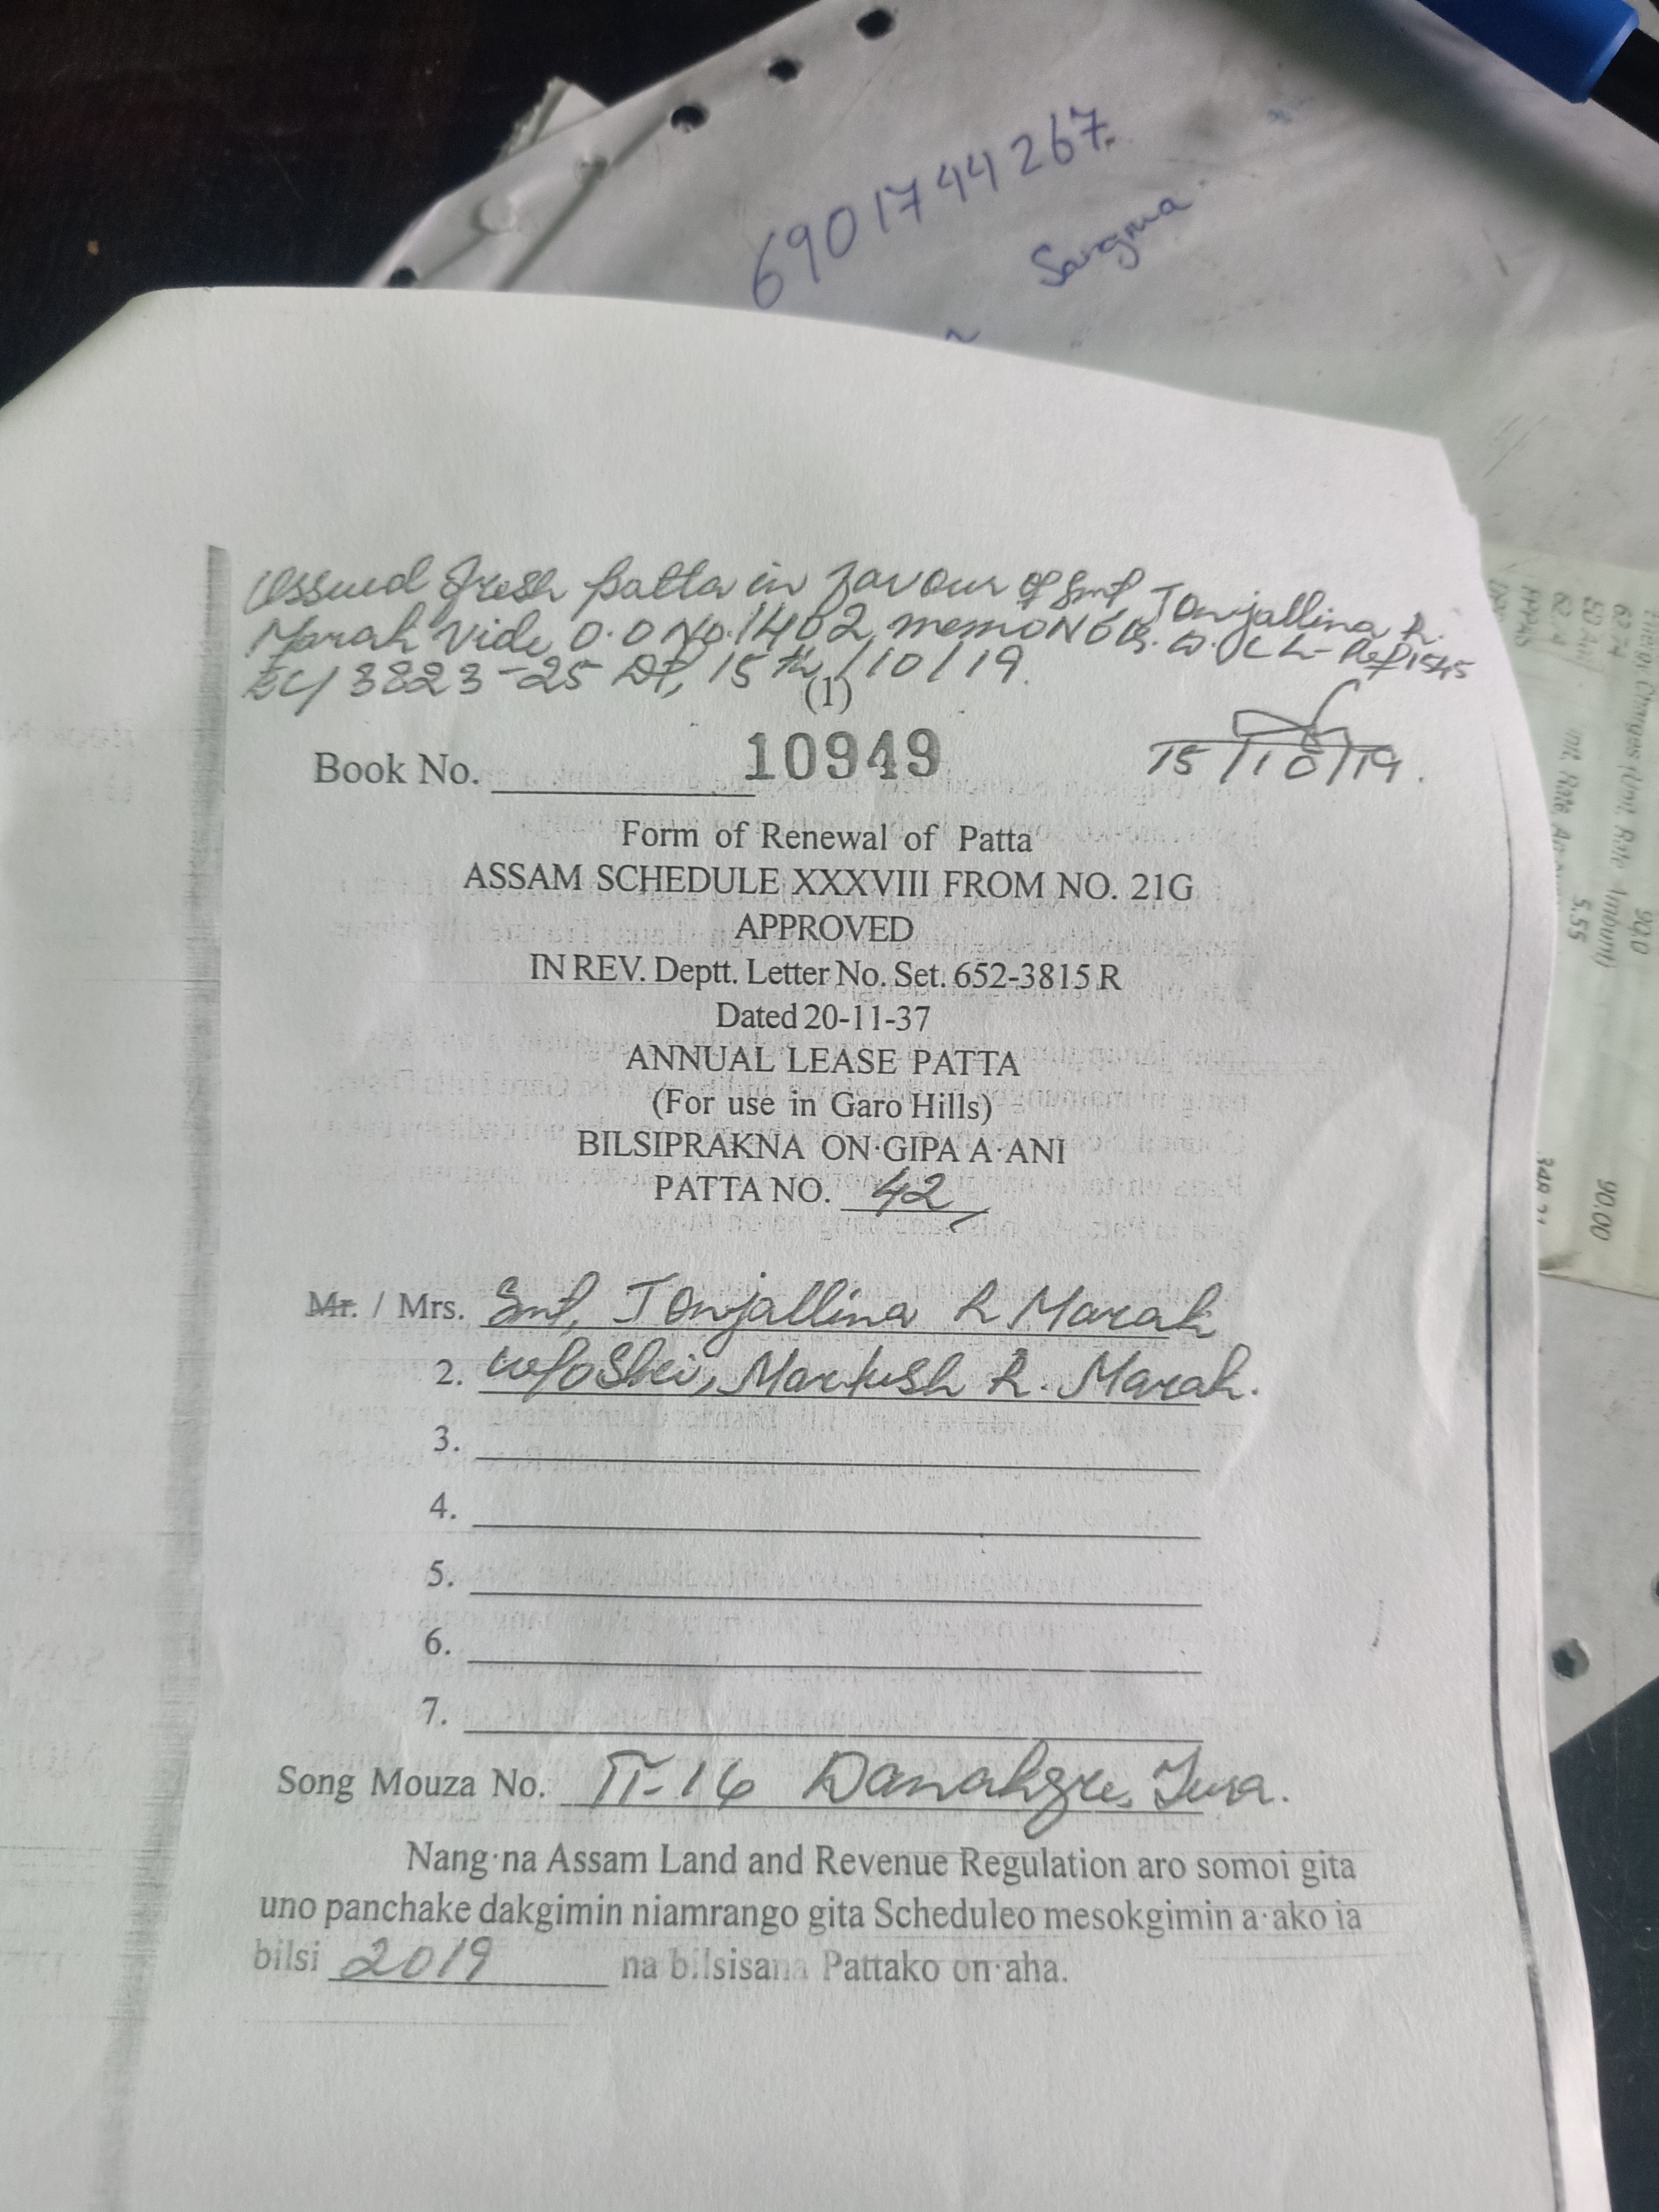 6901744267
Sangma
Issued fresh patta in favour of Smt Tonjallina R.
Marak Vide O.O No. 1402, memo No
3823-25 Dt, 15th/10/19.
(1)
Book No. 10949
15/10/19.
Form of Renewal of Patta
ASSAM SCHEDULE XXXVIII FROM NO. 21G
APPROVED
IN REV. Deptt. Letter No. Set. 652-3815 R
Dated 20-11-37
ANNUAL LEASE PATTA
(For use in Garo Hills)
BILSIPRAKNA ON·GIPA A·ANI
PATTA NO. 42
Mr. / Mrs. Smt, Tonjallina R Marak
2. w/o Shri, Markush R. Marak.
3.
4.
5.
6.
7.
Song Mouza No. II-16 Danakgre, Tura.
Nang·na Assam Land and Revenue Regulation aro somoi gita
uno panchake dakgimin niamrango gita Scheduleo mesokgimin a·ako ia
bilsi 2019 na bilsisana Pattako on·aha.
90.00
5.55